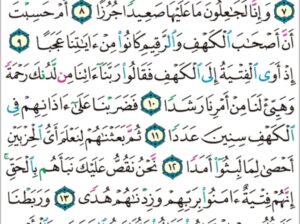 ٧ وَإِنَّا لَجَٰعِلُونَ مَا عَلَيْهَا صَعِيدًا جُرُزًا ٨ أَمْ حَسِبْتَ
أَنَّ أَصْحَٰبَ ٱلْكَهْفِ وَٱلرَّقِيمِ كَانُوا۟ مِنْ ءَايَٰتِنَا عَجَبًا ٩
إِذْ أَوَى ٱلْفِتْيَةُ إِلَى ٱلْكَهْفِ فَقَالُوا۟ رَبَّنَآ ءَاتِنَا مِن لَّدُنكَ رَحْمَةً
وَهَيِّئْ لَنَا مِنْ أَمْرِنَا رَشَدًا ١٠ فَضَرَبْنَا عَلَىٰٓ ءَاذَانِهِمْ فِى
ٱلْكَهْفِ سِنِينَ عَدَدًا ١١ ثُمَّ بَعَثْنَٰهُمْ لِنَعْلَمَ أَىُّ ٱلْحِزْبَيْنِ
أَحْصَىٰ لِمَا لَبِثُوٓا۟ أَمَدًا ١٢ نَّحْنُ نَقُصُّ عَلَيْكَ نَبَأَهُم بِٱلْحَقِّ
إِنَّهُمْ فِتْيَةٌ ءَامَنُوا۟ بِرَبِّهِمْ وَزِدْنَٰهُمْ هُدًى ١٣ وَرَبَطْنَا